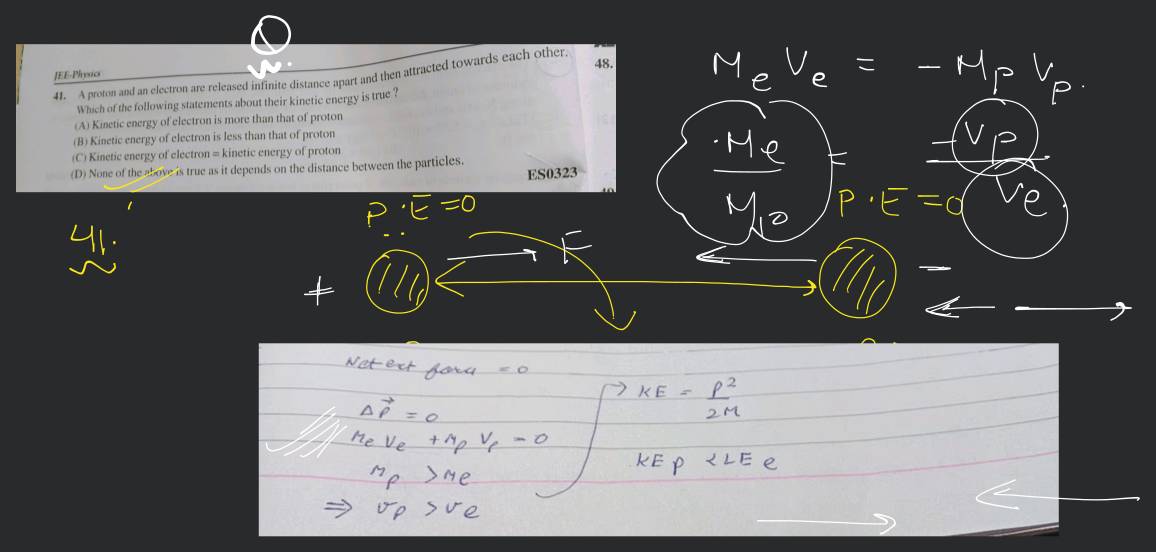 Q
JEE-Physics
41. A proton and an electron are released infinite distance apart and then attracted towards each other.
Which of the following statements about their kinetic energy is true ?
(A) Kinetic energy of electron is more than that of proton
(B) Kinetic energy of electron is less than that of proton
(C) Kinetic energy of electron = kinetic energy of proton
(D) None of the above is true as it depends on the distance between the particles.
ES0323
48.
Me Ve = - Mp Vp.
Me / Mp = - Vp / Ve
41.
P.E = 0
P.E = 0
+
F
-
Net ext force = 0
Δp⃗ = 0
Me Ve + Mp Vp = 0
Mp > Me
⇒ vp > ve
→ KE = P² / 2M
KE p < LE e